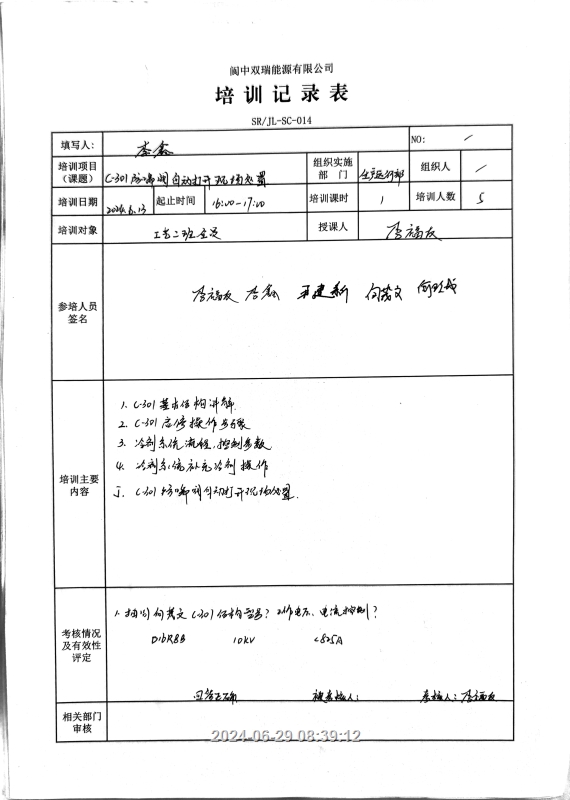 阆中双瑞能源有限公司
培训记录表
SR/JL-SC-014
填写人： 李鑫 NO: /
培训项目（课题） C-301防喘阀自动打开现场处置 组织实施部门 生产运行部 组织人 /
培训日期 2024.6.13 起止时间 16:00-17:00 培训课时 1 培训人数 5
培训对象 工艺二班全员 授课人 李福友
参培人员签名 李福友 李鑫 王建新 向茂文
培训主要内容
1. C-301基本结构讲解
2. C-301启停操作步骤
3. 冷剂系统流程，控制参数
4. 冷剂系统补充冷剂操作
5. C-301防喘阀自动打开现场处置.
考核情况及有效性评定
1. 抽问向茂文 C-301结构型号？工作电压、电流控制？
10KV <825A
回答正确 被考核人： 考核人：李福友
相关部门审核
2024-06-29 08:39:12